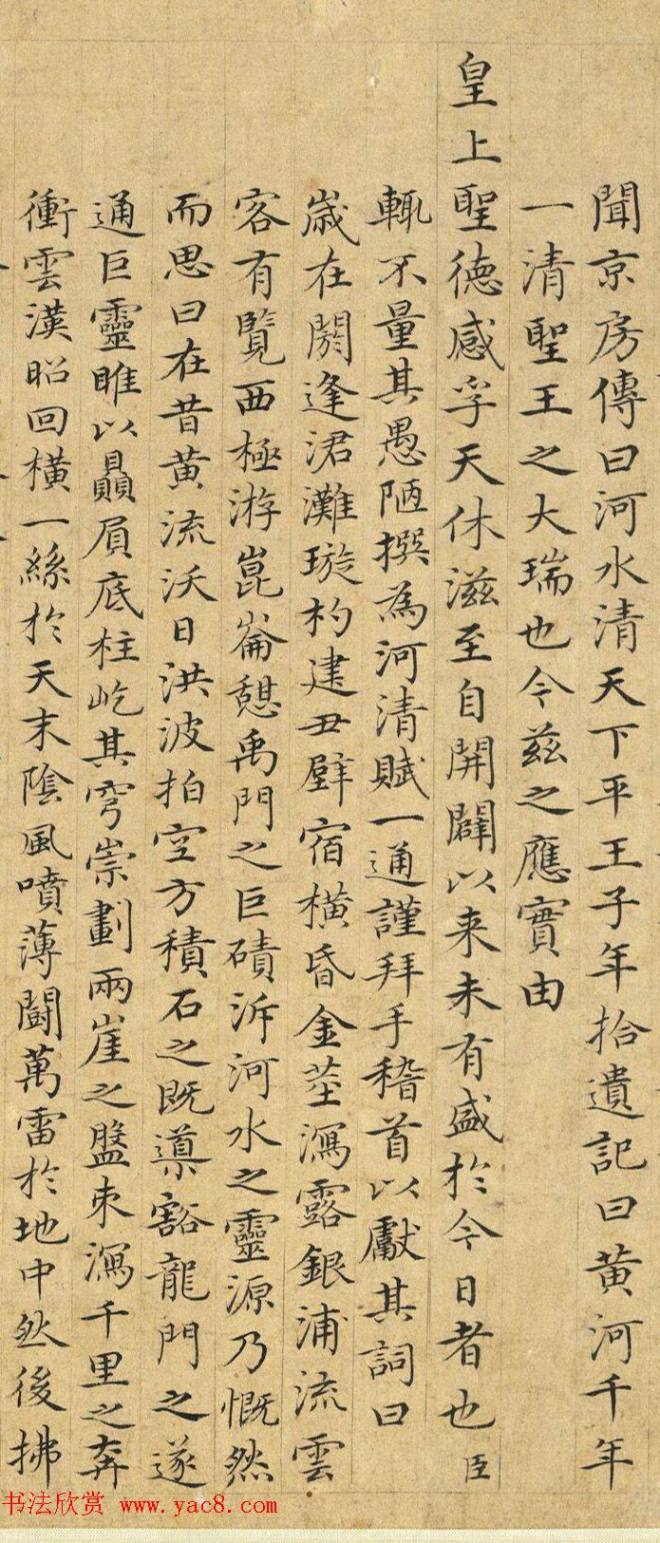 聞京房傳曰河水清天下平王子年拾遺記曰黄河千年
一清聖王之大瑞也今兹之應實由
皇上聖德感孚天休滋至自開闢以来未有盛於今日者也臣
輒不量其愚陋撰為河清賦一通謹拜手稽首以獻其詞曰
歲在閼逢涒灘璇杓建丑壁宿横昏金莖瀉露銀浦流雲
客有覽西極游崑崙憇禹門之巨磧泝河水之靈源乃慨然
而思曰在昔黄流沃日洪波拍空方積石之既導豁龍門之遂
通巨靈睢以贔屓底柱屹其穹崇劃兩崖之盤束瀉千里之奔
衝雲漢昭回横一絲於天末陰風噴薄鬭萬雷於地中然後拂
书法欣赏 www.yac8.com